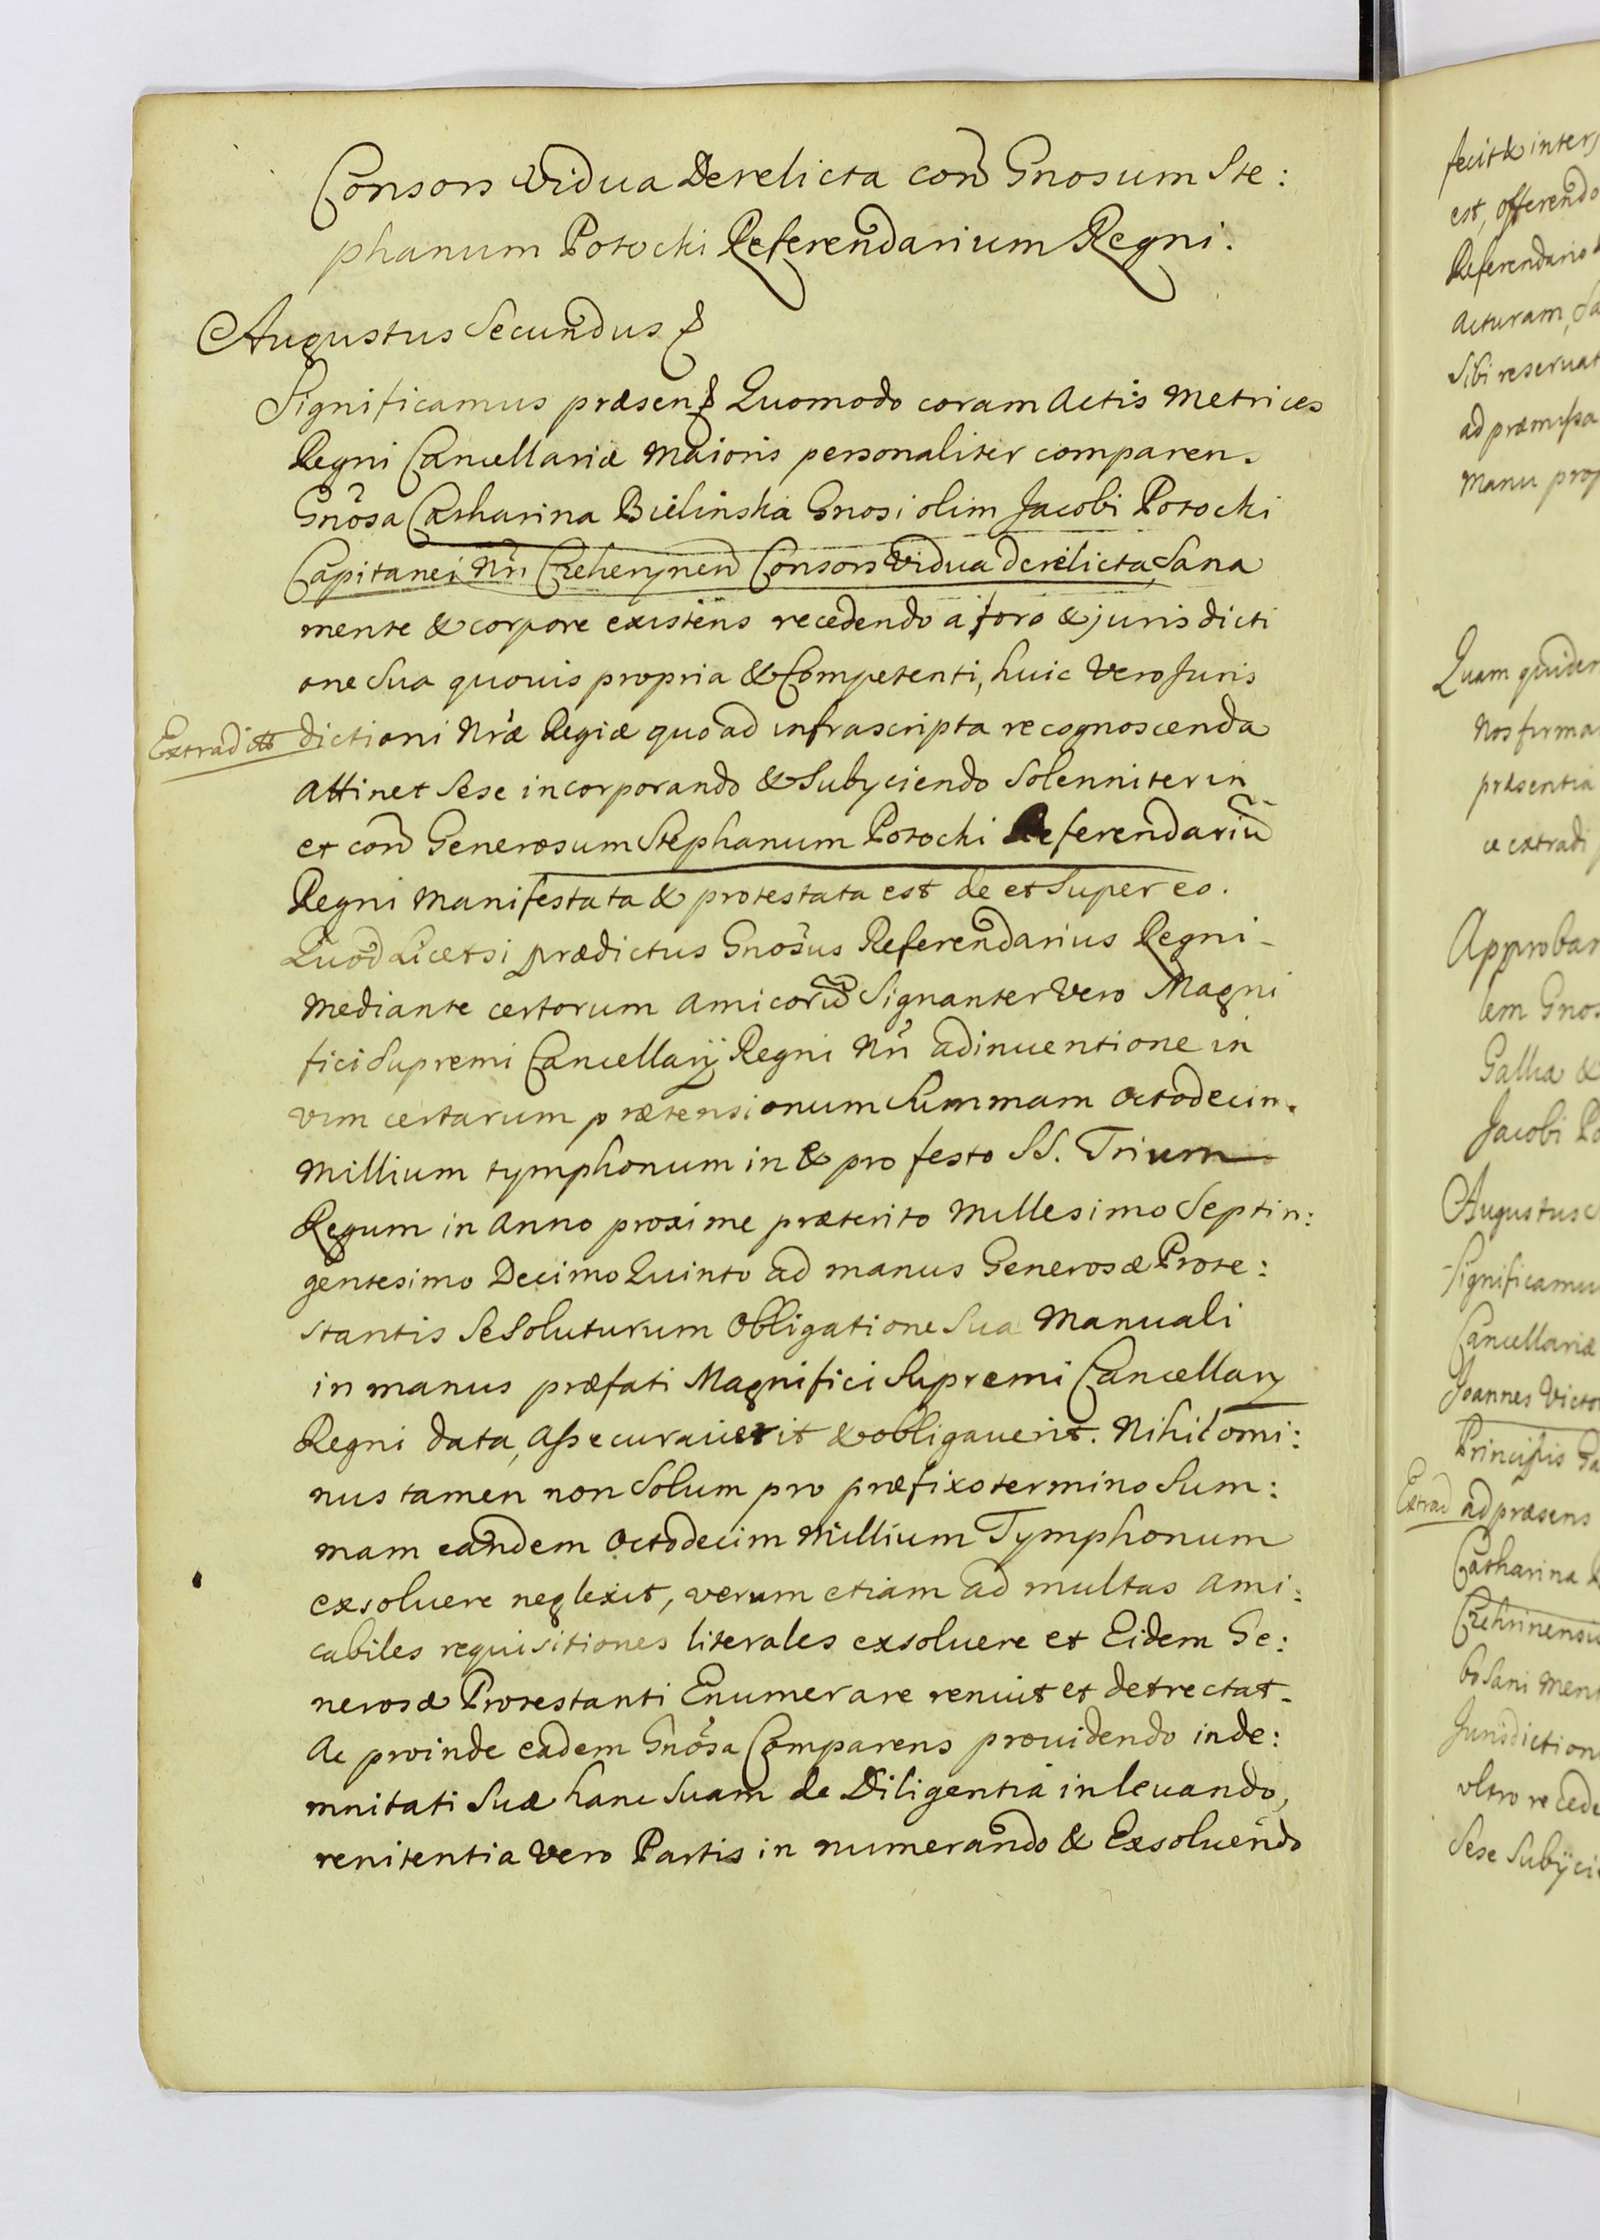 Consors Vidua Derelicta con Gnosum Ste:
phanum Potocki Referendarium Regni.
Augustus Secundus &
Significamus præsen& Quomodo coram Actis Metrices
Regni Cancellariæ Maioris personaliter comparens
Gnosa Catharina Bielinska Gnosi olim Jacobi Potocki
Capitanei Nri Czeherynen Consors Vidua derelicta, Sana
mente & corpore existens recedendo a foro & juris dicti
one Sua quouis propria & Competenti, huic Vero Juris
Extradit
dictioni Nræ Regiæ quoad infrascripta recognoscenda
attinet Sese incorporando & Subyciendo Solenniter in
et con Generosum Stephanum Potocki Referendariu
Regni Manifestata & protestata est de et Super eo.
Quod Licet si prædictus Gnosus Referendarius Regni -
Mediante certorum Amicoru Signanter Vero Magni
fici Supremi Cancellarij Regni Nri adinuentione in
vim certarum prætensionum Summam Octodecim
Millium tymphonum in & pro festo SS. Trium
Regum in Anno proxime præterito Millesimo Septin:
gentesimo Decimo Quinto ad manus Generosæ Prote:
stantis Se Soluturum Obligatione Sua Manuali
in manus præfati Magnifici Supremi Cancellary
Regni data, assecurauerit & obligauerit. Nihilomi:
nus tamen non Solum pro præfixo termino Sum:
mam eandem Octodecim Millium Tymphonum
exsoluere neglexit, verum etiam ad multas Ami:
cabiles requisitiones literales exsoluere et Eidem Ge:
nerosæ Protestanti Enumerare renuit et detrectat.
Ac proinde eadem Gnosa Comparens prouidendo inde:
mnitati Suæ hanc Suam de Diligentia inleuando,
renitentia Vero Partis in numerando & Exsoluendo
fecit & inter
est, offerendo
Referendario
Acturam, Sa
Sibi reseruat
ad præmissa
Manu prop
Quam quidem
Nos firma
præsentia
extradi
Approbar
Gnos
Gallia &
Jacobi Po
Augustus
Significamu
Cancellariæ
Joannes Victo
Principis Ga
Extrad
ad præsens
Catharina
Czehrinensi
Sani Ment
Jurisdiction
vltro recede
Sese Subijci